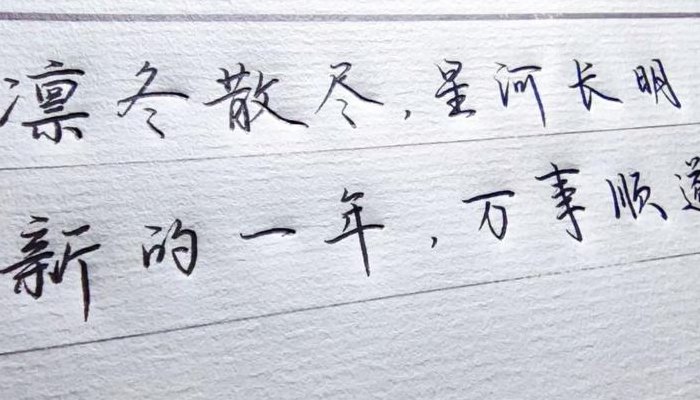 凛冬散尽,星河长明
新的一年,万事顺遂